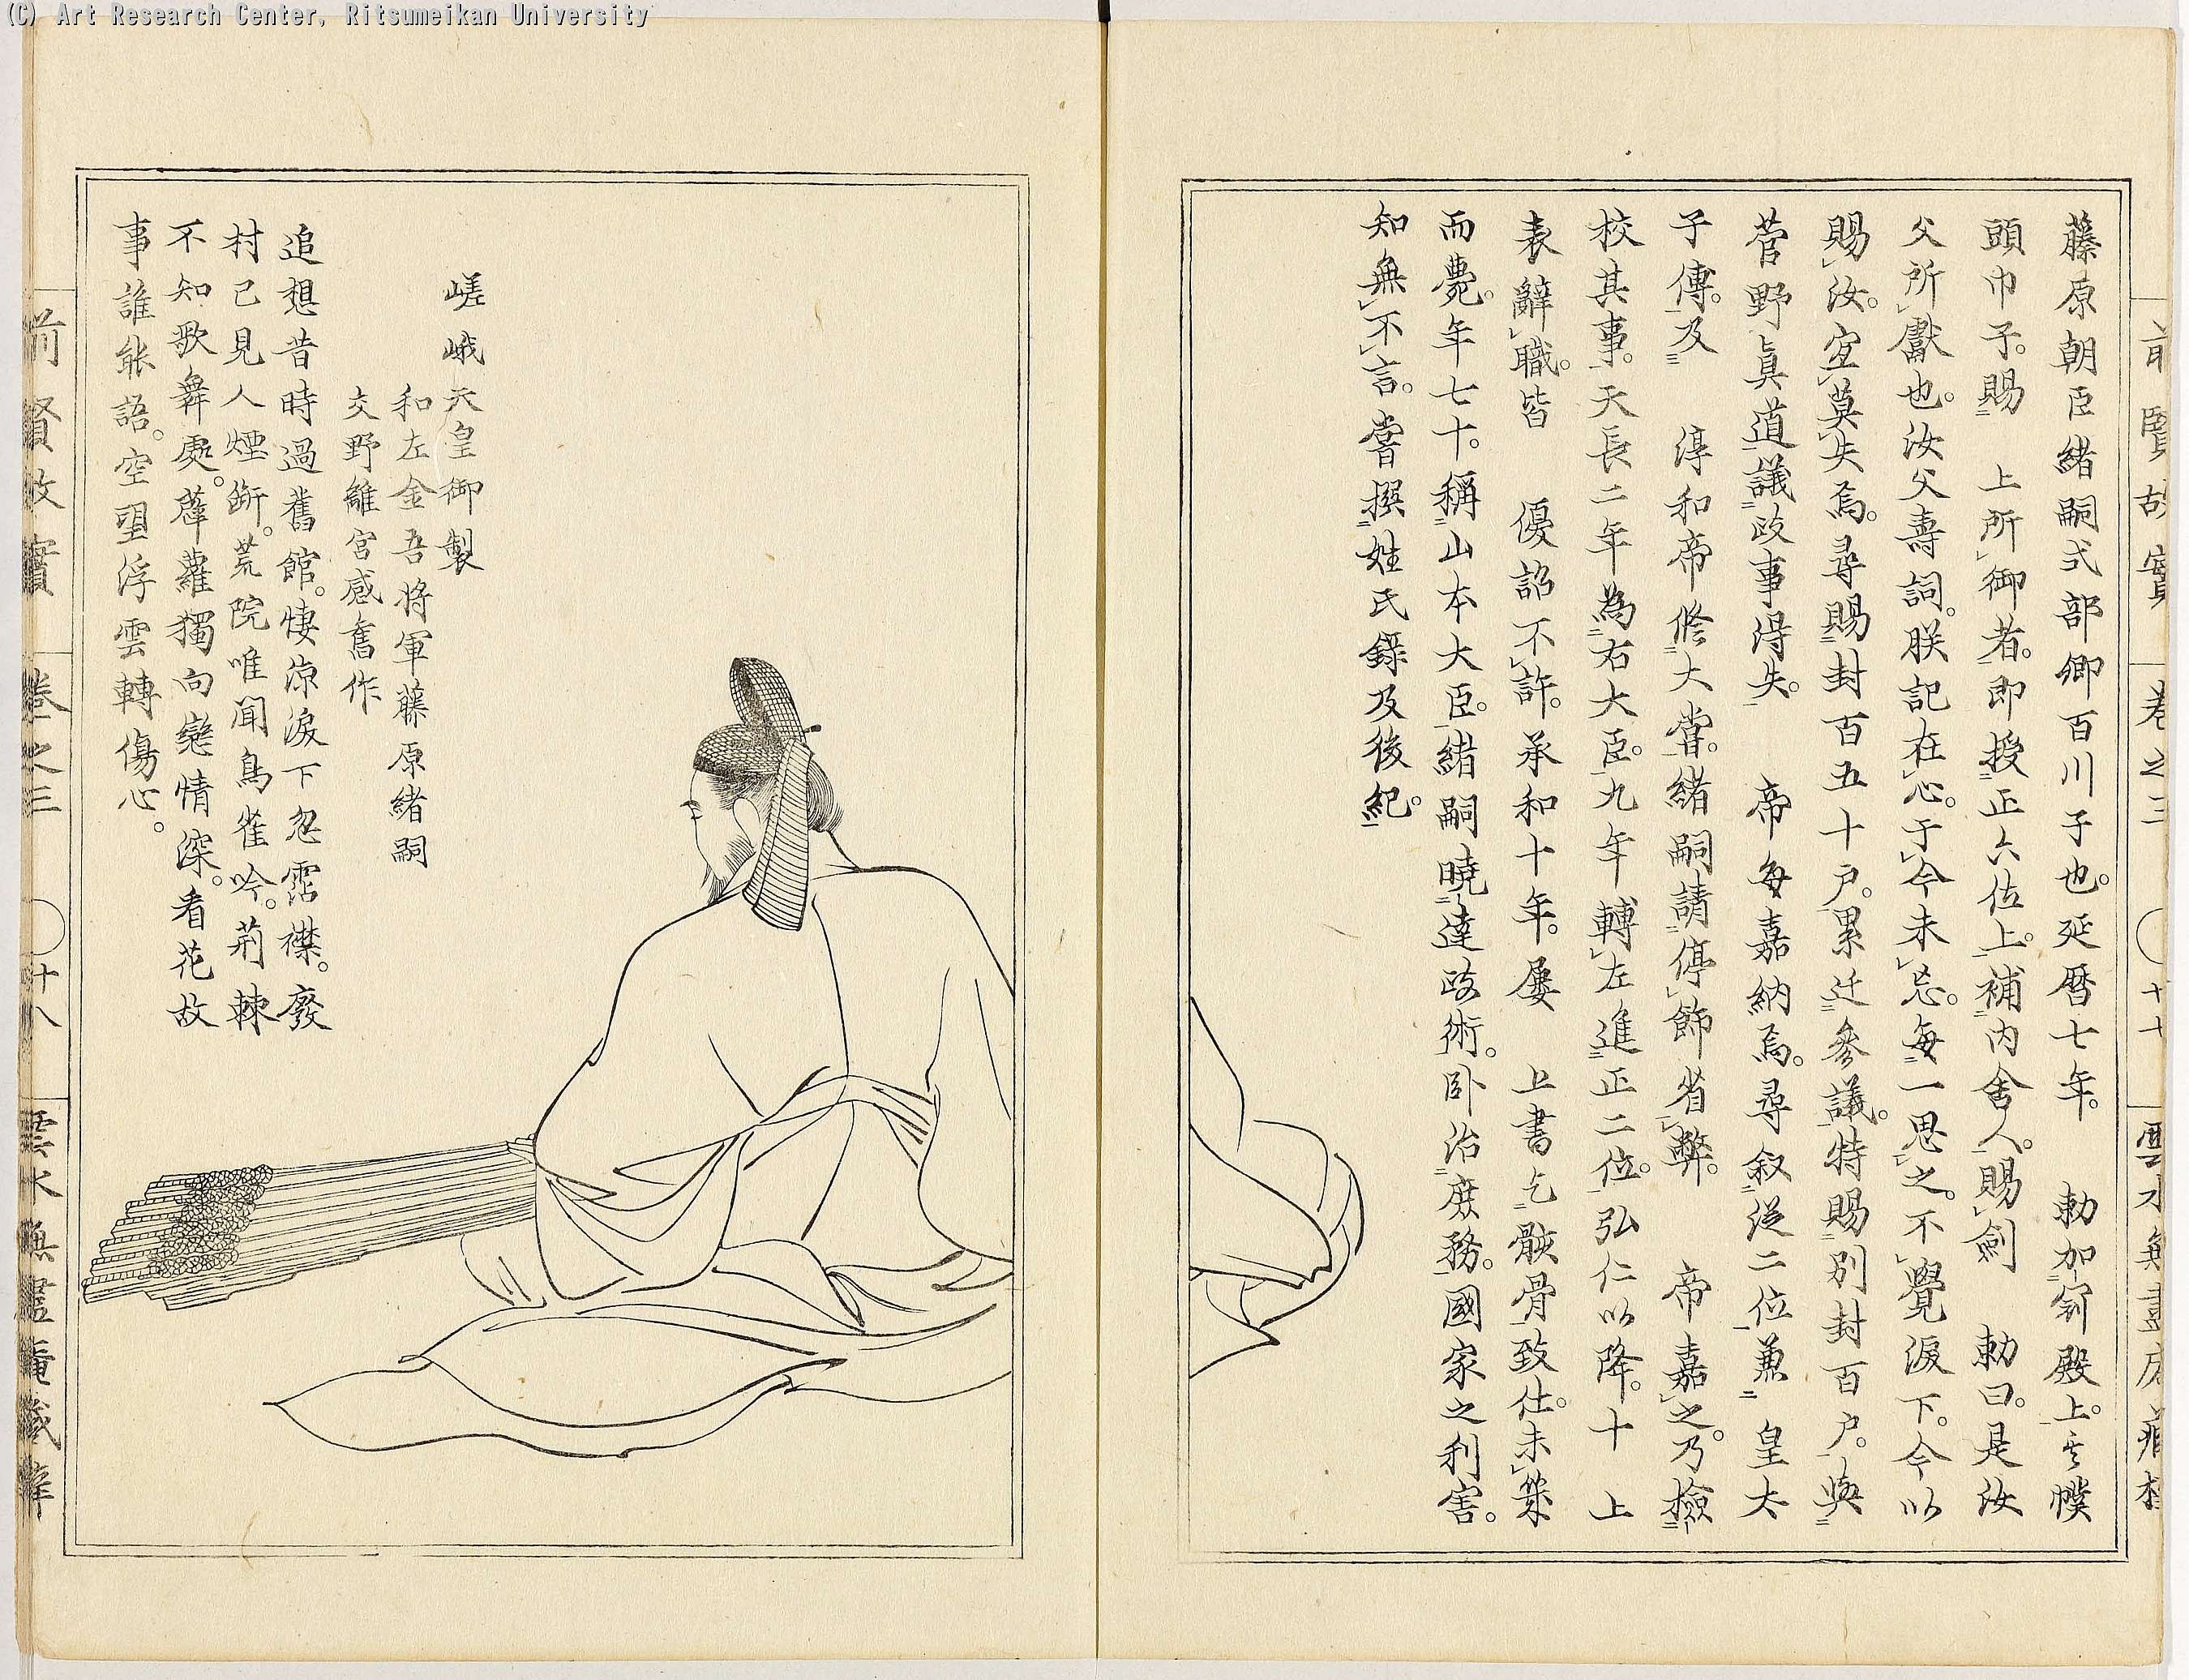 (C) Art Research Center, Ritsumeikan University
前賢故實 卷之三 十七 雲水無盡庵藏梓
藤原朝臣緒嗣式部卿百川子也。延暦七年。 勅加冠殿上。其幞
頭巾子。賜 上所御者。即授正六位上。補内舍人。賜劍 勅曰。是汝
父所獻也。汝父壽詞。朕記在心。于今未忘。每一思之。不覺淚下。今以
賜汝。宜莫失焉。尋賜封百五十戸。累迁參議。特賜別封百戸。與
菅野眞道議政事得失。 帝每嘉納焉。尋叙從二位兼 皇太
子傳。及 淳和帝修大嘗。緒嗣請停飾省弊。 帝嘉之。乃檢
校其事。天長二年為右大臣。九年轉左進正二位。弘仁以降。十上
表辭職。皆 優詔不許。承和十年。屢 上書乞骸骨致仕。未幾
而薨。年七十。稱山本大臣。緒嗣曉達政術。臥治庶務。國家之利害。
知無不言。嘗撰姓氏錄及後紀。
嵯峨天皇御製
和左金吾将軍藤原緒嗣
交野離宮感舊作
追想昔時過舊館。悽凉淚下忽霑襟。廢
村已見人煙斷。荒院唯聞鳥雀吟。荊棘
不知歌舞處。薜蘿獨向戀情深。看花故
事誰能語。空望浮雲轉傷心。
前賢故實 卷之三 十八 雲水無盡庵藏梓